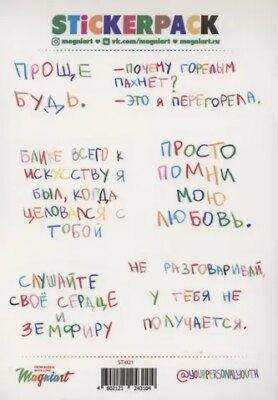 STICKERPACK
magniart vk.com/magniart magniart.ru
ПРОЩЕ
БУДЬ.
—ПОЧЕМУ ГОРЕЛЫМ
ПАХНЕТ?
—ЭТО Я ПЕРЕГОРЕЛА.
БЛИЖЕ ВСЕГО К
ИСКУССТВУ Я
БЫЛ, КОГДА
ЦЕЛОВАЛСЯ С
ТОБОЙ
ПРОСТО
ПОМНИ
МОЮ
ЛЮБОВЬ.
СЛУШАЙТЕ
СВОЁ СЕРДЦЕ
И
ЗЕМФИРУ
НЕ РАЗГОВАРИВАЙ,
У ТЕБЯ НЕ
ПОЛУЧАЕТСЯ.
ST-021
Magniart
4 602121 243104
@YOURPERSONALYOUTH